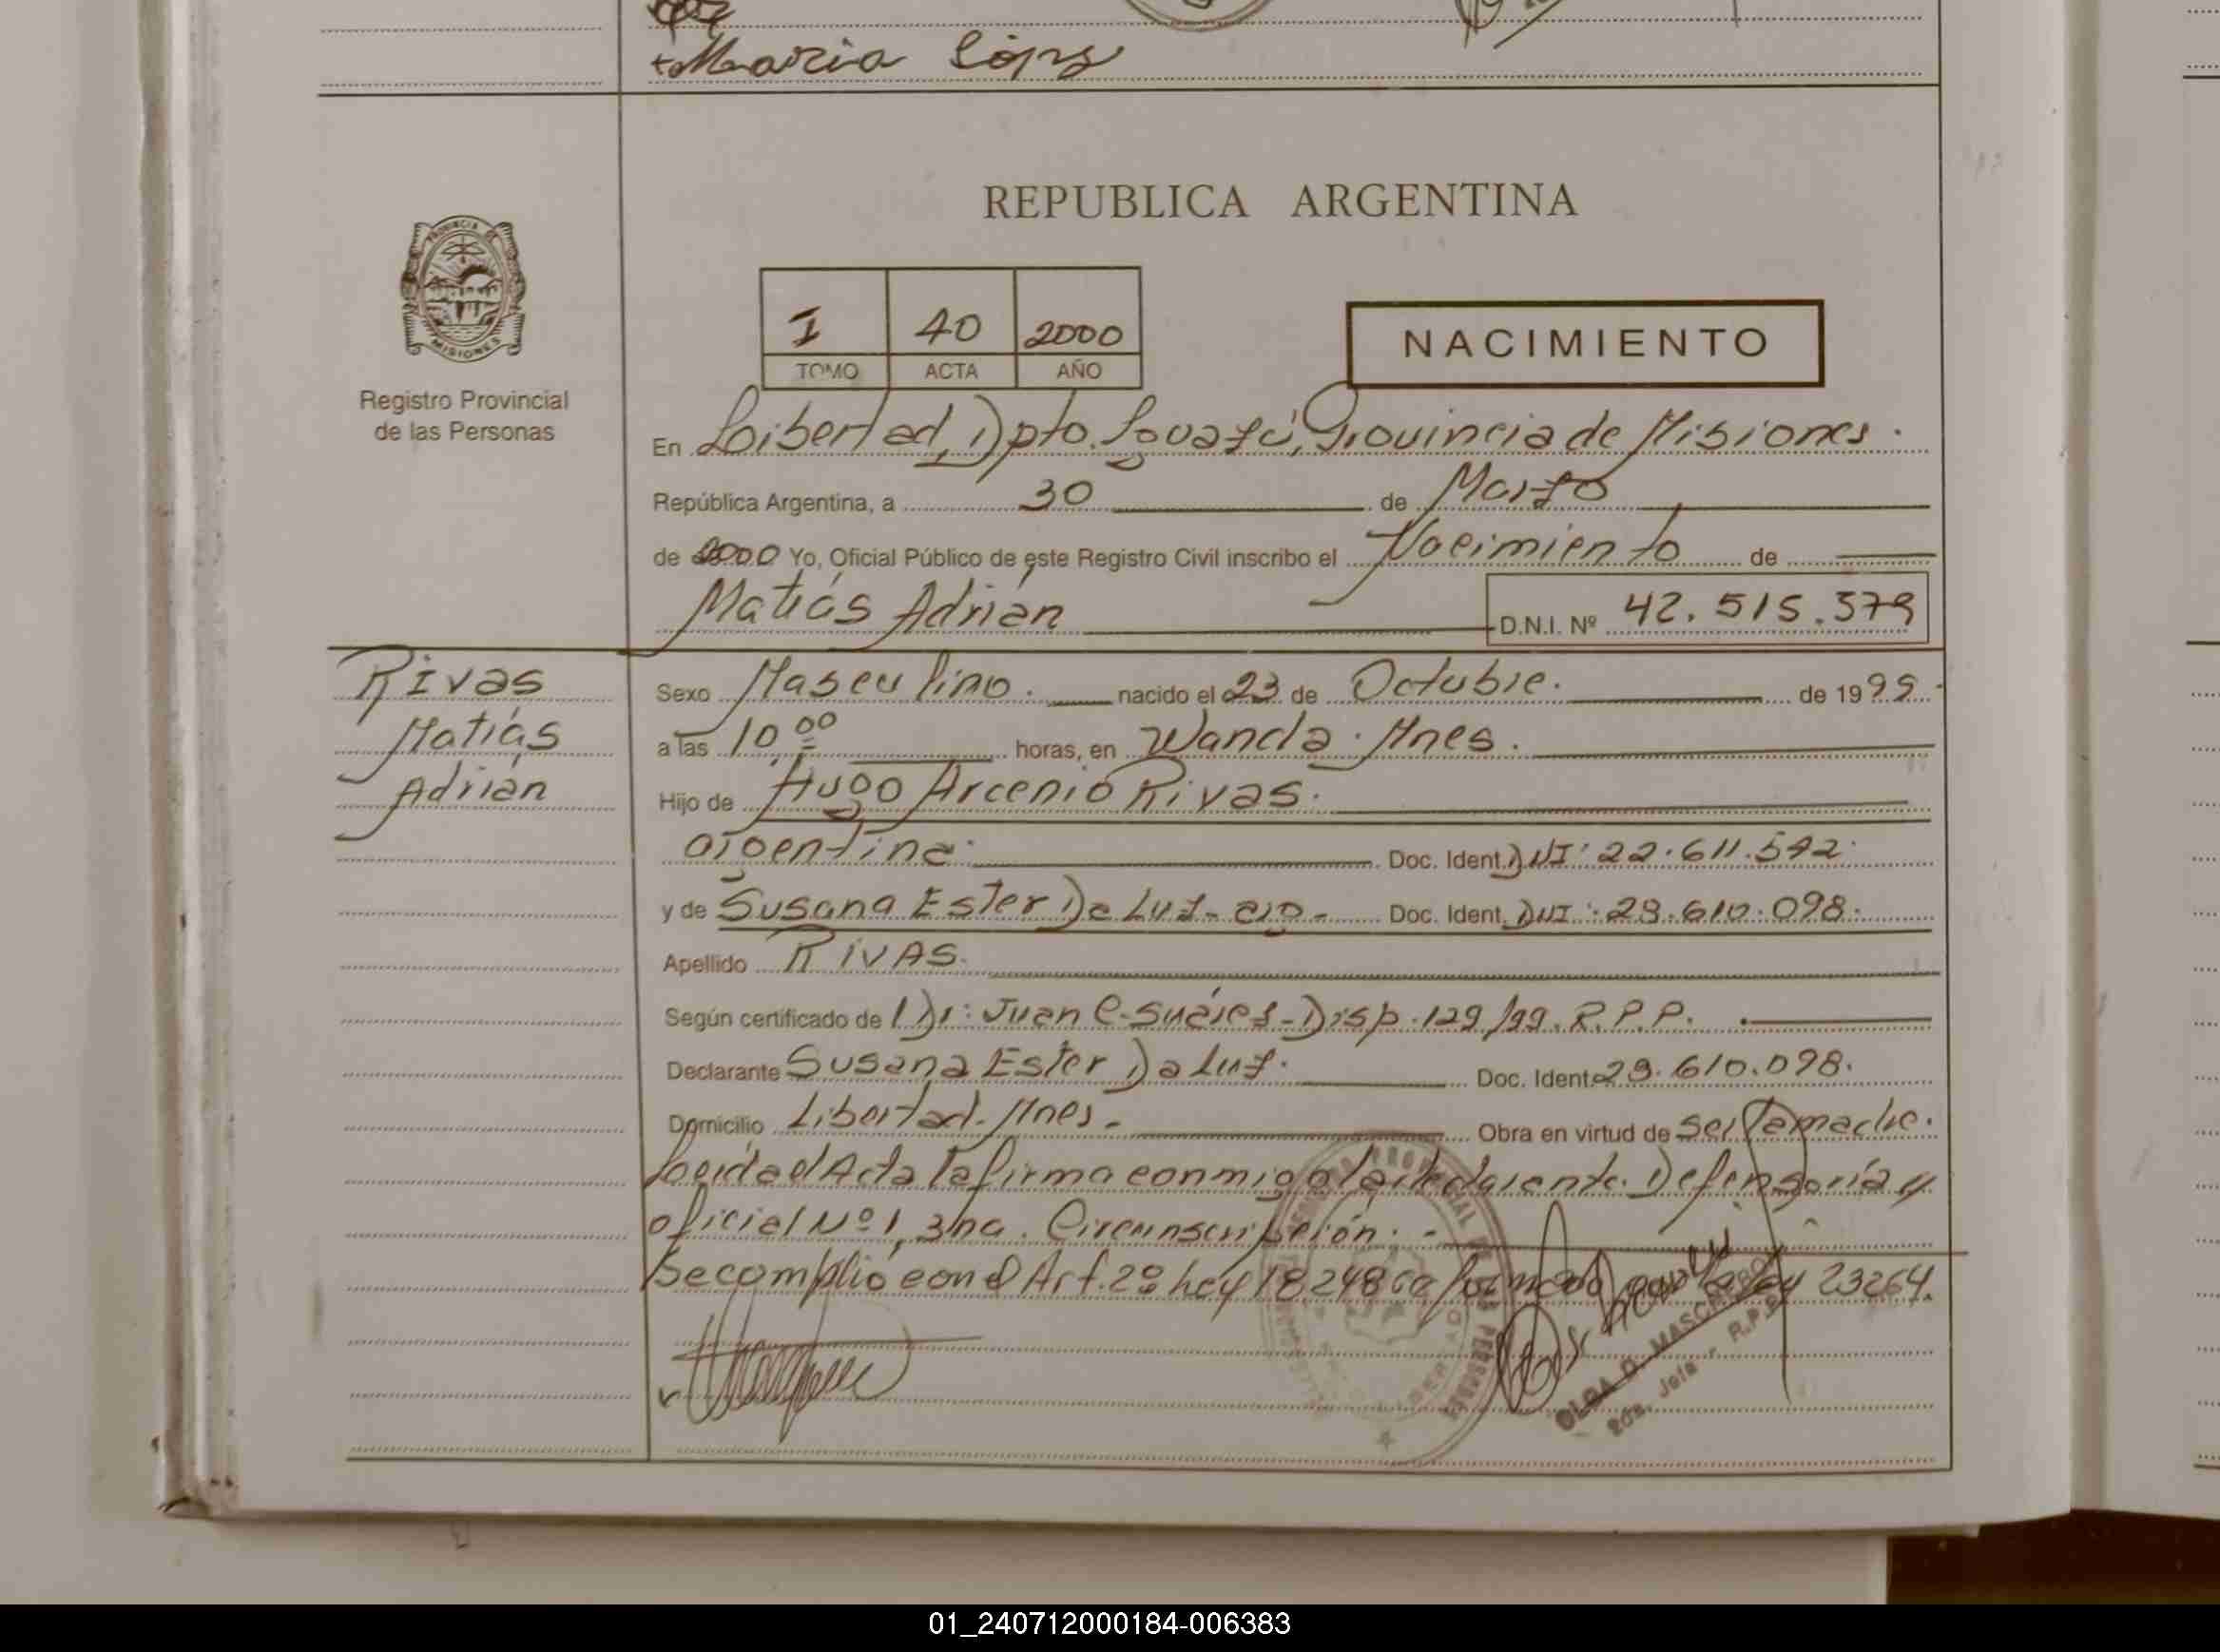 María
REPUBLICA ARGENTINA
PROVINCIA DE
MISIONES
I 40 2000
TOMO ACTA AÑO
NACIMIENTO
Registro Provincial
de las Personas
En Libertad, Dpto. Iguazú, Provincia de Misiones.
República Argentina, a 30 de Marzo
de 2000 Yo, Oficial Público de este Registro Civil inscribo el Nacimiento de
Matías Adrián D.N.I. Nº 42.515.379
Rivas
Matías
Adrián
Sexo Masculino. nacido el 23 de Octubre. de 1999.
a las 10 00 horas, en Wanda. Mnes.
Hijo de Hugo Arcenio Rivas.
argentina. Doc. Ident. DNI: 22.611.542.
y de Susana Ester Da Luz - arg - Doc. Ident. DNI: 29.610.098.
Apellido RIVAS.
Según certificado de Dr: Juan C. Suárez - Disp. 129/99. R.P.P.
Declarante Susana Ester Da Luz. Doc. Ident. 29.610.098.
Domicilio Libertad. Mnes. - Obra en virtud de ser la madre.
Leída el Acta la firma conmigo la declarante. Defensoría
oficial Nº 1, 3ra. Circunscripción. -
Se cumplió con el Art. 2º Ley 18.248 la Ley 23264.
OLGA D. MASCHERO
2da. Jefa - R.P.P.
01_240712000184-006383